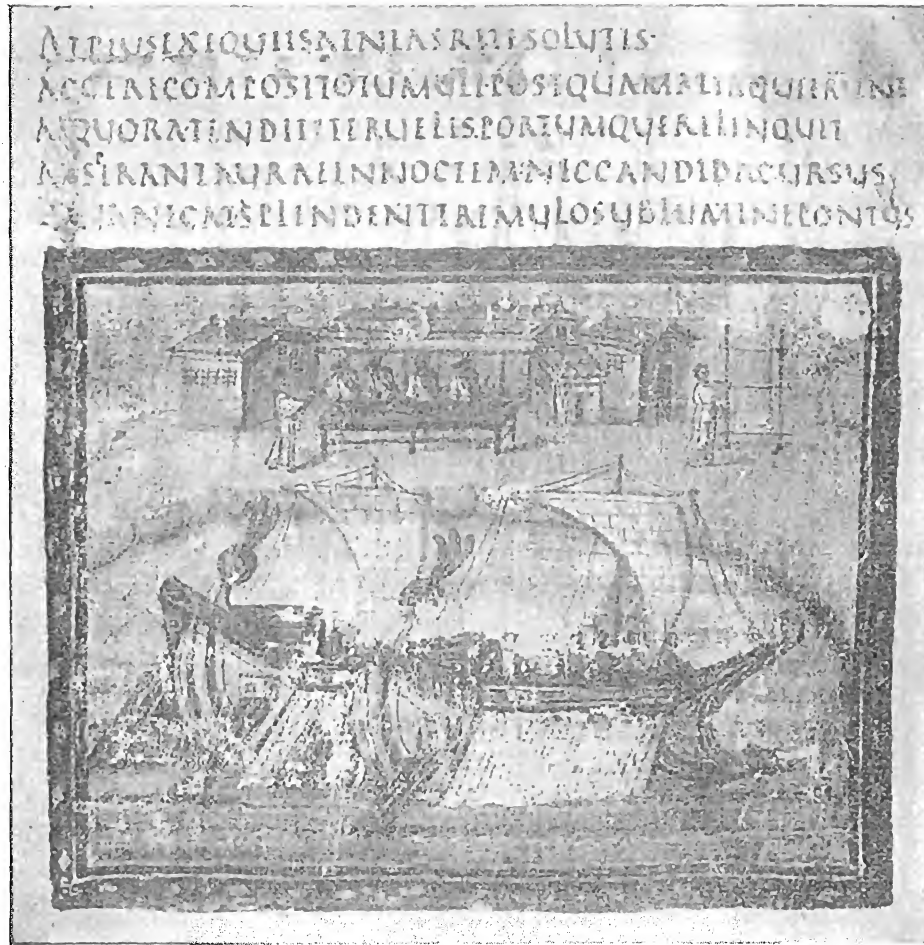 ATPIUSEXEQUIISAENEASRITESOLUTIS·
AGGERECOMPOSITOTUMULI·POSTQUAMALTAQUIERUNT
AEQUORATENDITITERUELIS·PORTUMQUERELINQUIT
ASPIRANTAURAEINNOCTEMNECCANDIDACURSUS
LUNANEGATSPLENDENTTREMULOSUBLUMINEPONTUS